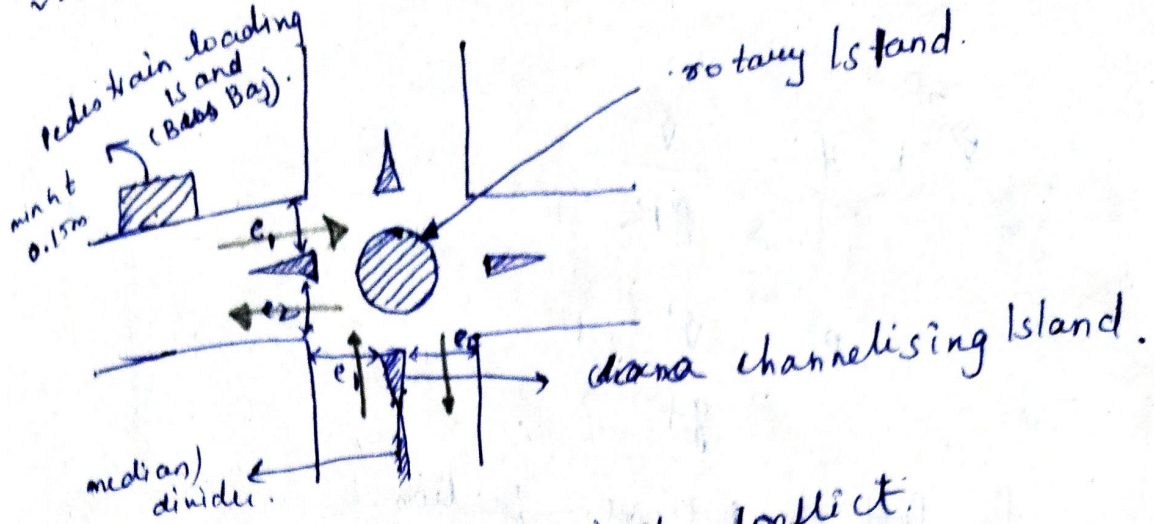 Pedestrain loading
Island
(Bus Bay).
min ht
0.15m
rotary Island.
e1
e2
e1
e2
channelising Island.
median)
divider.
conflict.